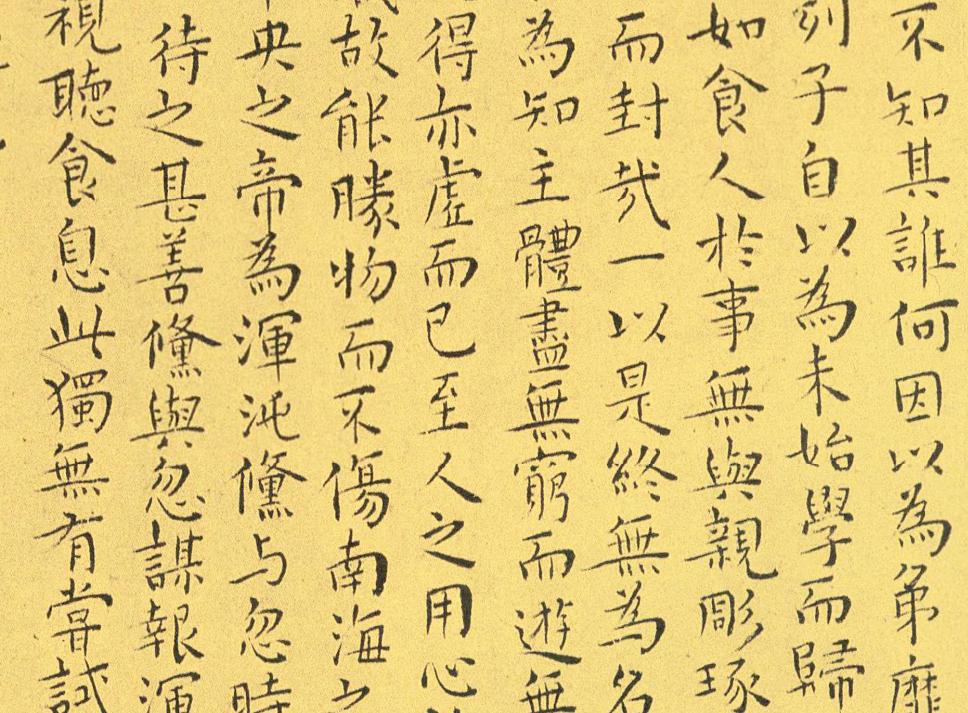 不知其誰何因以為弟靡
列子自以為未始學而歸
如食人於事無與親彫琢
而封哉一以是終無為名
為知主體盡無窮而遊無
得亦虛而已至人之用心
故能勝物而不傷南海之
央之帝為渾沌儵与忽時
待之甚善儵與忽謀報渾
視聽食息此獨無有嘗試